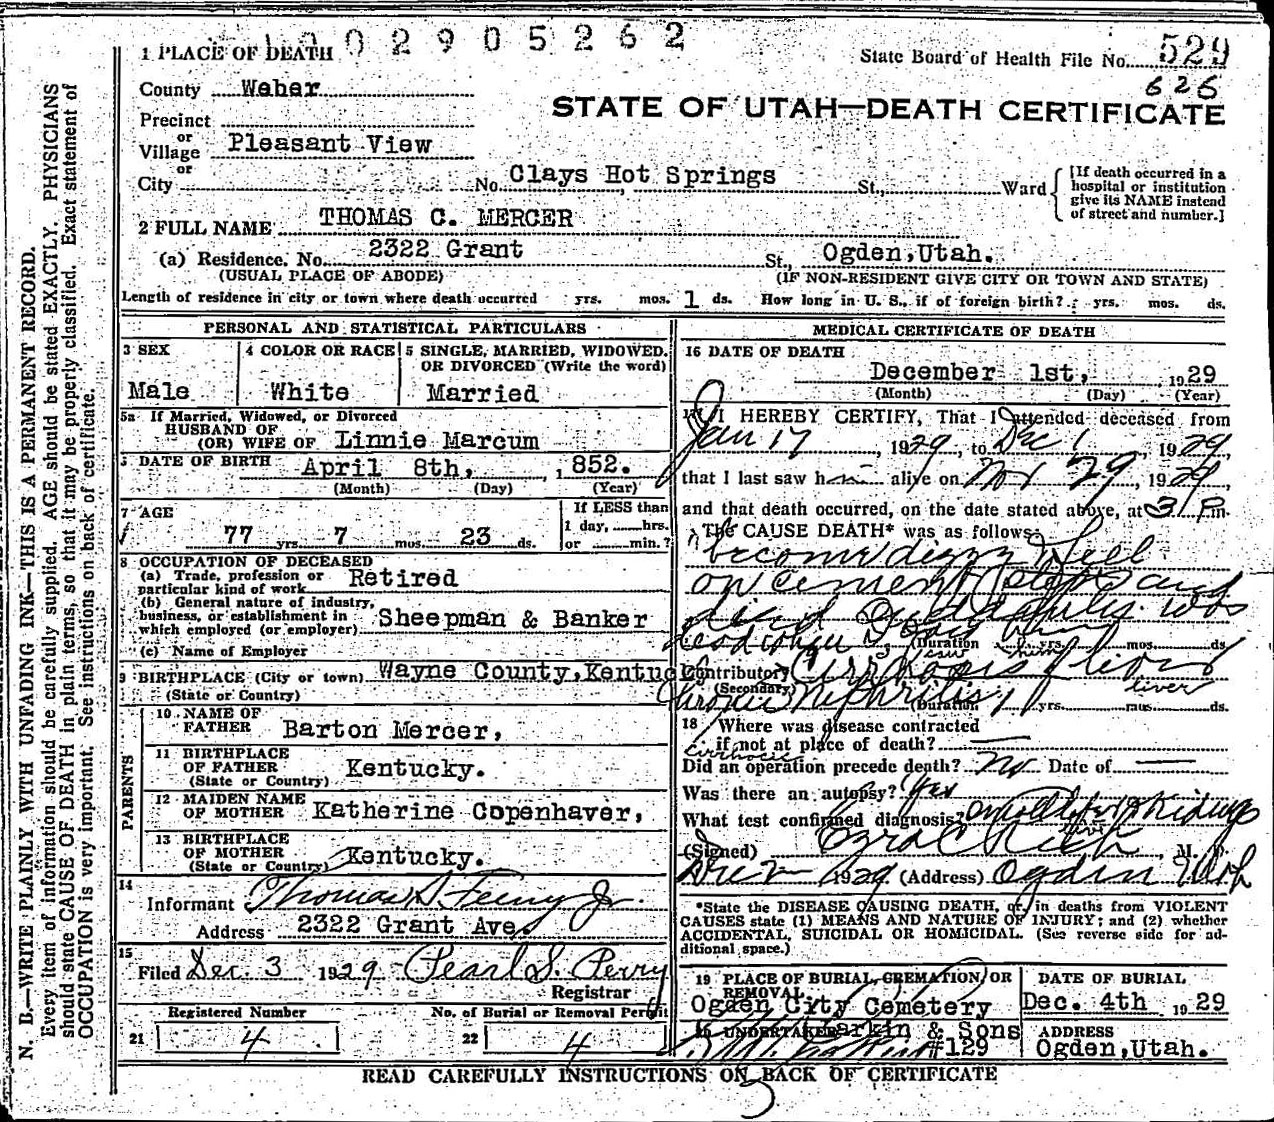 1002905262
1 PLACE OF DEATH
State Board of Health File No. 529
626
County Weber
STATE OF UTAH—DEATH CERTIFICATE
Precinct
or
Village Pleasant View
or
City No. Clays Hot Springs St., Ward
[If death occurred in a
hospital or institution
give its NAME instead
of street and number.]
2 FULL NAME THOMAS C. MERCER
(a) Residence. No. 2322 Grant St., Ogden,Utah.
(USUAL PLACE OF ABODE) (IF NON-RESIDENT GIVE CITY OR TOWN AND STATE)
Length of residence in city or town where death occurred yrs. mos. 1 ds. How long in U. S., if of foreign birth? yrs. mos. ds.
PERSONAL AND STATISTICAL PARTICULARS
3 SEX 4 COLOR OR RACE 5 SINGLE, MARRIED, WIDOWED,
OR DIVORCED (Write the word)
Male White Married
5a If Married, Widowed, or Divorced
HUSBAND OF
(OR) WIFE OF Linnie Marcum
DATE OF BIRTH April 8th, , 852.
(Month) (Day) (Year)
7 AGE If LESS than
1 day, hrs.
77 yrs 7 mos. 23 ds. or min.?
8 OCCUPATION OF DECEASED
(a) Trade, profession or
particular kind of work Retired
(b) General nature of industry,
business, or establishment in
which employed (or employer) Sheepman & Banker
(c) Name of Employer
9 BIRTHPLACE (City or town) Wayne County,Kentuc
(State or Country)
PARENTS
10 NAME OF
FATHER Barton Mercer,
11 BIRTHPLACE
OF FATHER Kentucky.
(State or Country)
12 MAIDEN NAME
OF MOTHER Katherine Copenhaver,
13 BIRTHPLACE
OF MOTHER Kentucky.
(State or Country)
14
Informant Thomas D. Feeny Jr.
Address 2322 Grant Ave.
15
Filed Dec. 3 1929 Pearl S. Perry
Registrar
Registered Number No. of Burial or Removal Permit
21 4 22 4
MEDICAL CERTIFICATE OF DEATH
16 DATE OF DEATH
December 1st, , 1929
(Month) (Day) (Year)
17 I HEREBY CERTIFY, That I attended deceased from
Jan 17 , 1929, to Dec 1 , 1929
that I last saw him alive on Nov 29, 1929
and that death occurred, on the date stated above, at 3 P m.
The CAUSE DEATH* was as follows:
become dizzy & fell
on cement steps and
died suddenly. was
dead when I saw him (Duration yrs. mos. ds.
Contributory Cirrhosis of liver
(Secondary) liver
Chronic Nephritis (Duration yrs. mos. ds.
18 Where was disease contracted
if not at place of death? —
cirrhosis
Did an operation precede death? No Date of —
Was there an autopsy? Yes
What test confirmed diagnosis? of & Kidneys
liver
(Signed) Ezra C Rich , M. D.
1929 (Address) Ogden Utah
*State the DISEASE CAUSING DEATH, or, in deaths from VIOLENT
CAUSES state (1) MEANS AND NATURE OF INJURY; and (2) whether
ACCIDENTAL, SUICIDAL OR HOMICIDAL. (See reverse side for ad-
ditional space.)
19 PLACE OF BURIAL, CREMATION, OR
REMOVAL
DATE OF BURIAL
Ogden City Cemetery Dec. 4th 1929
20 UNDERTAKER Larkin & Sons ADDRESS
#129 Ogden,Utah.
READ CAREFULLY INSTRUCTIONS ON BACK OF CERTIFICATE
3
N. B.—WRITE PLAINLY WITH UNFADING INK—THIS IS A PERMANENT RECORD.
Every item of information should be carefully supplied. AGE should be stated EXACTLY. PHYSICIANS
should state CAUSE OF DEATH in plain terms, so that it may be properly classified. Exact statement of
OCCUPATION is very important. See instructions on back of certificate.